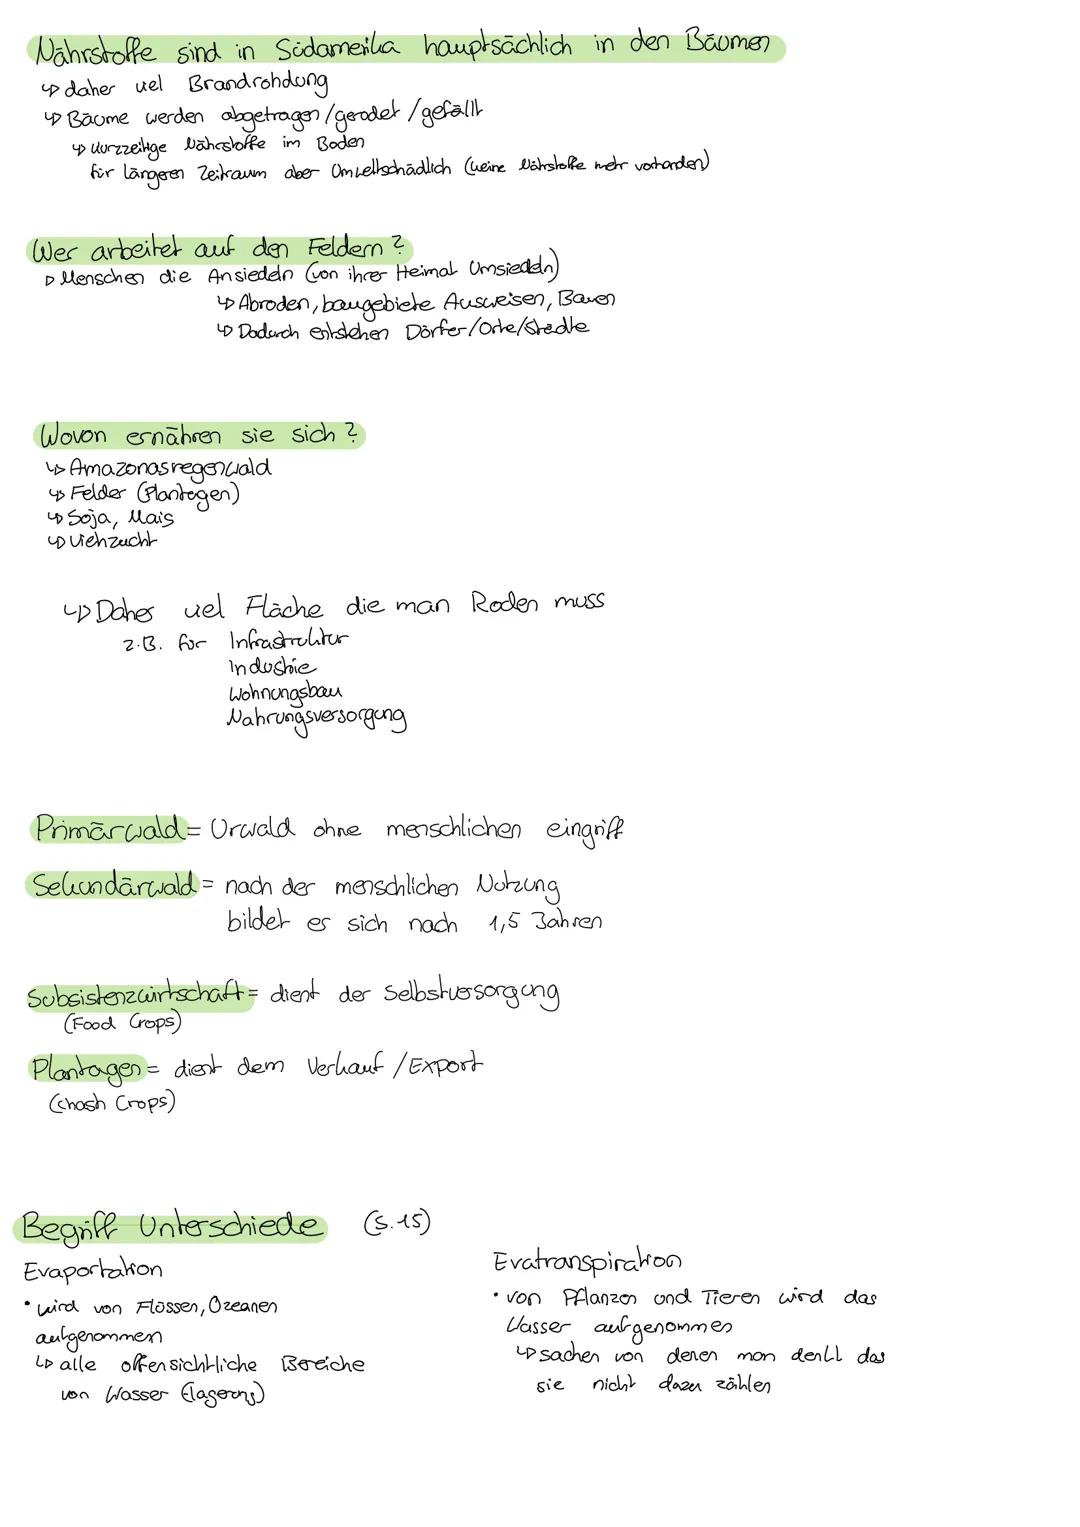 Nährstoffe sind in Südamerika hauptsächlich in den Bäumen
↳ daher viel Brandrohdung
↳ Bäume werden abgetragen/gerodet/gefällt
↳ kurzzeitige Nährstoffe im Boden
für längeren Zeitraum aber Umweltschädlich (keine Nährstoffe mehr vorhanden)
Wer arbeitet auf den Feldern?
▷ Menschen die Ansiedeln (von ihrer Heimat Umsiedeln)
↳ Abroden, baugebiete Ausweisen, Bauen
↳ Dadurch entstehen Dörfer/Orte/Städte
Wovon ernähren sie sich?
↳ Amazonasregenwald
↳ Felder (Plantagen)
↳ Soja, Mais
↳ Viehzucht
↳ Daher viel Fläche die man Roden muss
z.B. für Infrastruktur
Industrie
Wohnungsbau
Nahrungsversorgung
Primärwald = Urwald ohne menschlichen eingriff
Sekundärwald = nach der menschlichen Nutzung
bildet er sich nach 1,5 Jahren
Subsistenzwirtschaft = dient der Selbstversorgung
(Food Crops)
Plantagen = dient dem Verkauf/Export
(chash Crops)
Begriff Unterschiede (S.15)
Evaportation
• wird von Flüssen, Ozeanen
aufgenommen
↳ alle offensichtliche Bereiche
von Wasser
Evatranspiration
• von Pflanzen und Tieren wird das
Wasser aufgenommen
↳ sachen von denen man denkt das
sie nicht dazu zählen